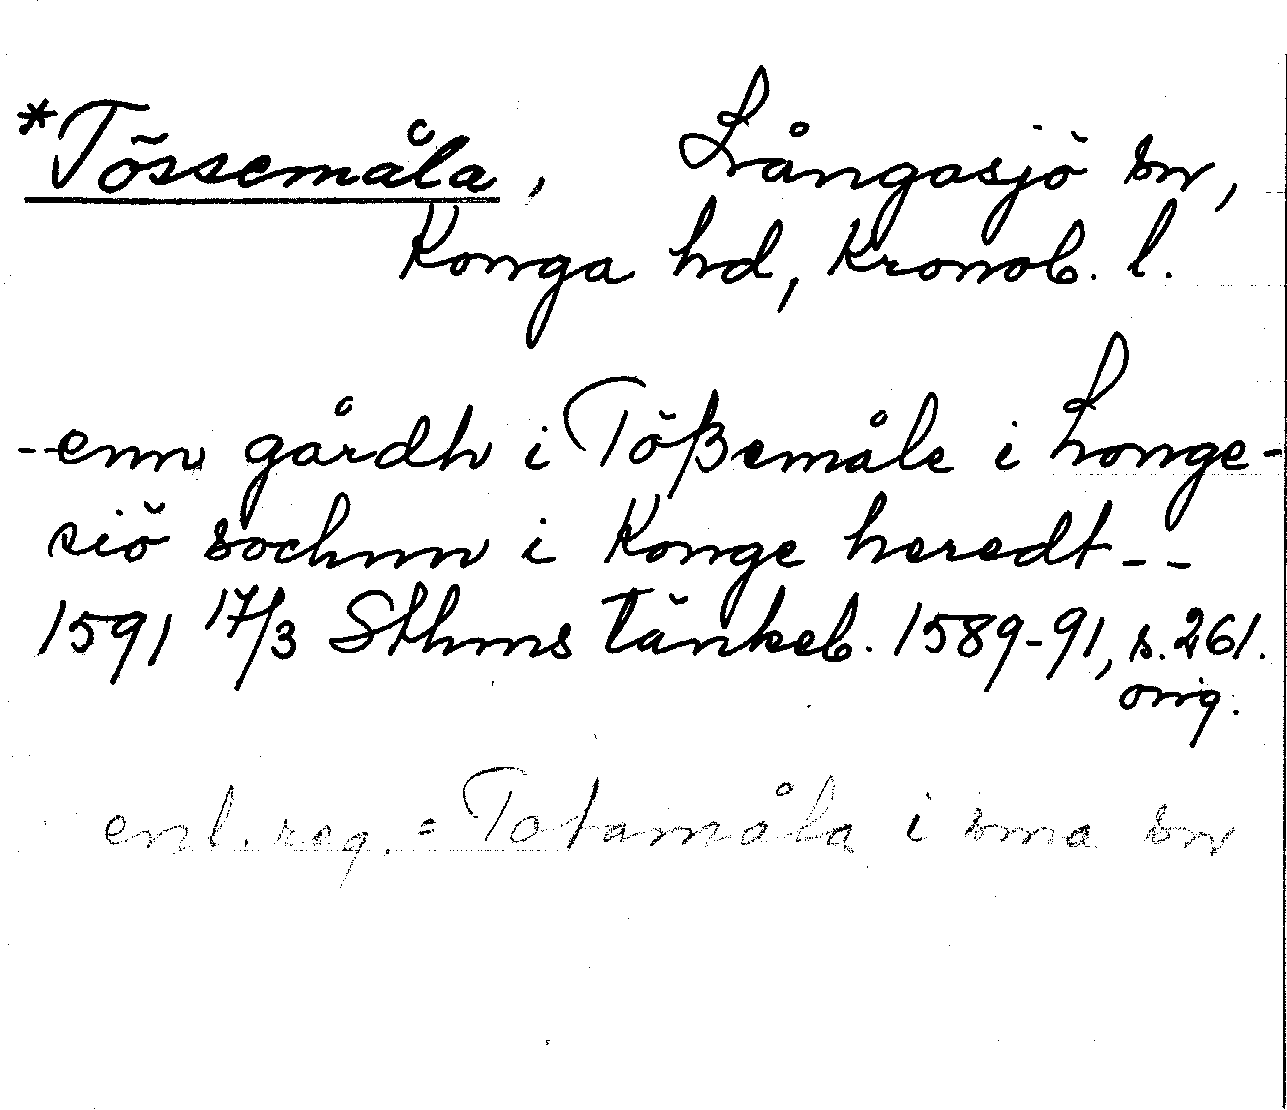 *Tössemåla, Långasjö sn,
Konga hd, Kronob. l.
--enn gårdh i Tößemåle i Longe-
siö sochnn i Konge heredt--
1591 17/3 Sthms tänkeb. 1589-91, s. 261.
orig.
enl. reg. = Totamåla i sma sn